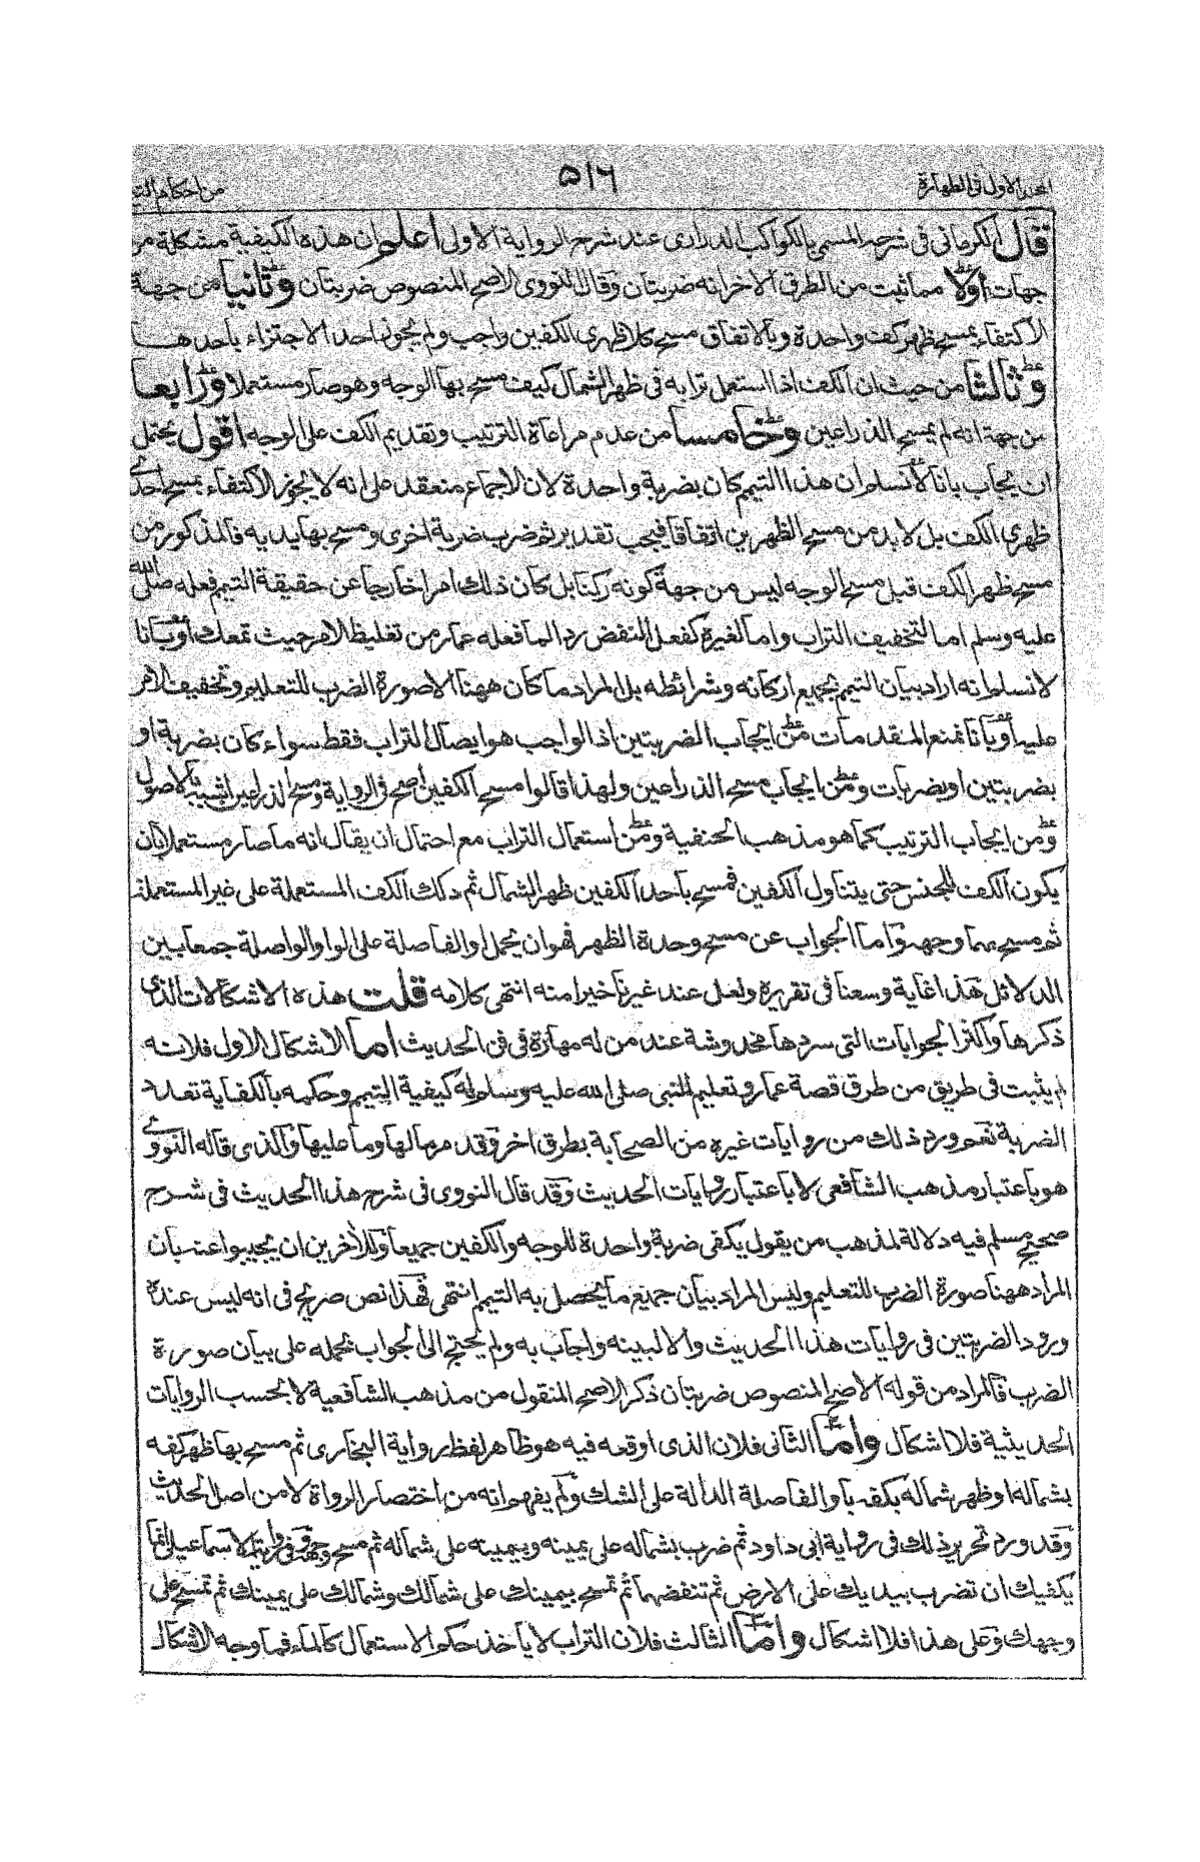 الجزء الاول فى الطهارة
٥١٦
من احكام
قال الكرمانى فى شرحه المسمى بالكواكب الدرارى عند شرح الرواية الاولى اعلم ان هذه الكيفية مشكلة من
جهات اولا مما ثبت من الطرق الاخر انه ضربتان وقال النووى الاصح المنصوص ضربتان وثانيا من جهة
الاكتفاء بمسح ظهر كف واحدة وبالاتفاق مسح كلا ظهرى الكفين واجب ولم يجوز احد الاجتزاء باحدهما
وثالثا من حيث ان الكف اذا استعمل ترابه فى ظهر الشمال كيف مسح بها الوجه وهو صار مستعملا ورابعا
من جهة انه لم يمسح الذراعين وخامسا من عدم مراعاة الترتيب وتقديم الكف على الوجه اقول يحتمل
ان يجاب بانا لا نسلم ان هذا التيمم كان بضربة واحدة لان الاجماع منعقد على انه لا يجوز الاكتفاء بمسح احدى
ظهرى الكف بل لا بد من مسح الظهرين اتفاقا فيجب تقدير ثم ضرب ضربة اخرى ومسح بها يديه فالمذكور من
مسح ظهر الكف قبل مسح الوجه ليس من جهة كونه ركنا بل كان ذلك امرا خارجا عن حقيقة التيمم فعله صلى الله
عليه وسلم اما لتخفيف التراب واما لغيره كفعل النفض ردا لما فعله عمار من تغليظ الامر حيث تمعك او بانا
لا نسلم انه اراد بيان التيمم بجميع اركانه وشرائطه بل المراد ما كان ههنا الا صورة الضرب للتعليم وتخفيف الامر
عليه او بانا نمنع المقدمات من ايجاب الضربتين اذ الواجب هو ايصال التراب فقط سواء كان بضربة او
بضربتين او بضربات ومن ايجاب مسح الذراعين ولهذا قالوا مسح الكفين اصح فى الرواية ومسح الذراعين اشبه بالاصول
ومن ايجاب الترتيب كما هو مذهب الحنفية ومن استعمال التراب مع احتمال ان يقال انه ما صار مستعملا بان
يكون الكف للجنس حتى يتناول الكفين فمسح باحد الكفين ظهر الشمال ثم دلك الكف المستعملة على غير المستعملة
ثم مسح بهما وجهه واما الجواب عن مسح وحدة الظهر فهو ان يحمل او الفاصلة على الواو الواصلة جمعا بين
الدلائل هذا غاية وسعنا فى تقريره ولعل عند غيرنا خيرا منه انتهى كلامه قلت هذه الاشكالات الذى
ذكرها واكثر الجوابات التى سردها مخدوشة عند من له مهارة فى فن الحديث اما الاشكال الاول فلانه
لم يثبت فى طريق من طرق قصة عمار وتعليم النبى صلى الله عليه وسلم له كيفية التيمم وحكمه بالكفاية تعدد
الضربة نعم ورد ذلك من روايات غيره من الصحابة بطرق اخر وقد مر مالها وما عليها والذى قاله النووى
هو باعتبار مذهب الشافعى لا باعتبار روايات الحديث وقد قال النووى فى شرح هذا الحديث فى شرح
صحيح مسلم فيه دلالة لمذهب من يقول يكفى ضربة واحدة للوجه والكفين جميعا وللآخرين ان يجيبوا عنه بان
المراد ههنا صورة الضرب للتعليم وليس المراد بيان جميع ما يحصل به التيمم انتهى فهذا نص صريح فى انه ليس عنده
ورود الضربتين فى روايات هذا الحديث والا لبينه واجاب به ولم يحتج الى الجواب بحمله على بيان صورة
الضرب فالمراد من قوله الاصح المنصوص ضربتان ذكر الاصح المنقول من مذهب الشافعية لا بحسب الروايات
الحديثية فلا اشكال واما الثانى فلان الذى اوقعه فيه هو ظاهر لفظ رواية البخارى ثم مسح بها ظهر كفه
بشماله او ظهر شماله بكفه باو الفاصلة الدالة على الشك ولم يفهم انه من اختصار الرواة لا من اصل الحديث
وقد ورد تحرير ذلك فى رواية ابى داود ثم ضرب بشماله على يمينه وبيمينه على شماله ثم مسح وجهه وفى رواية الاسماعيلى انما
يكفيك ان تضرب بيديك على الارض ثم تنفضهما ثم تمسح بيمينك على شمالك وشمالك على يمينك ثم تمسح على
وجهك وعلى هذا فلا اشكال واما الثالث فلان التراب لا يأخذ حكم الاستعمال كالماء فما وجه الاشكال